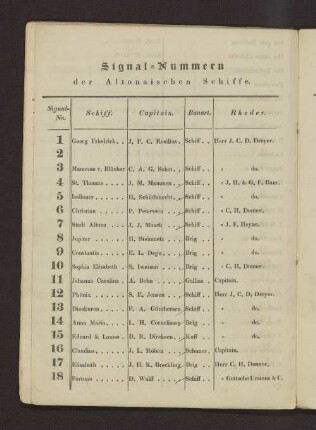 Signal-Nummern
der Altonaischen Schiffe.
Signal-No. Schiff. Capitain. Bauart. Rheder.
1 Georg Friedrich, J. F. C. Schiff Herr J. C. D. Dreyer.
2
3 Mummsen v. Blücher C. A. G. Schiff " do.
4 St. Thomas J. M. Mommsen Schiff " J. H. & G. F. Baur.
5 D. Schiff " do.
6 Christian P. Petersen Schiff " C. H. Donner.
7 Stadt Altona J. J. Schiff " J. F. Heyne.
8 Jupiter H. Steinmetz Brig " do.
9 Constantia E. L. Brig " do.
10 Sophia Elisabeth S. Iwensen Brig " C. H. Donner.
11 Johanna Carolina A. Behn Gallias Capitain.
12 Phönix S. E. Jensen Schiff Herr J. C. D. Dreyer.
13 Dioskuren F. A. Schiff " do.
14 Anna Maria L. H. Cornelissen Brig " do.
15 Eduard & Louise D. R. Dirksen Kuff " do.
16 Claudine J. L. Schoner Capitain.
17 Elisabeth J. H. K. Breckling Brig Herr C. H. Donner.
18 Fortuna D. Wulff Schiff